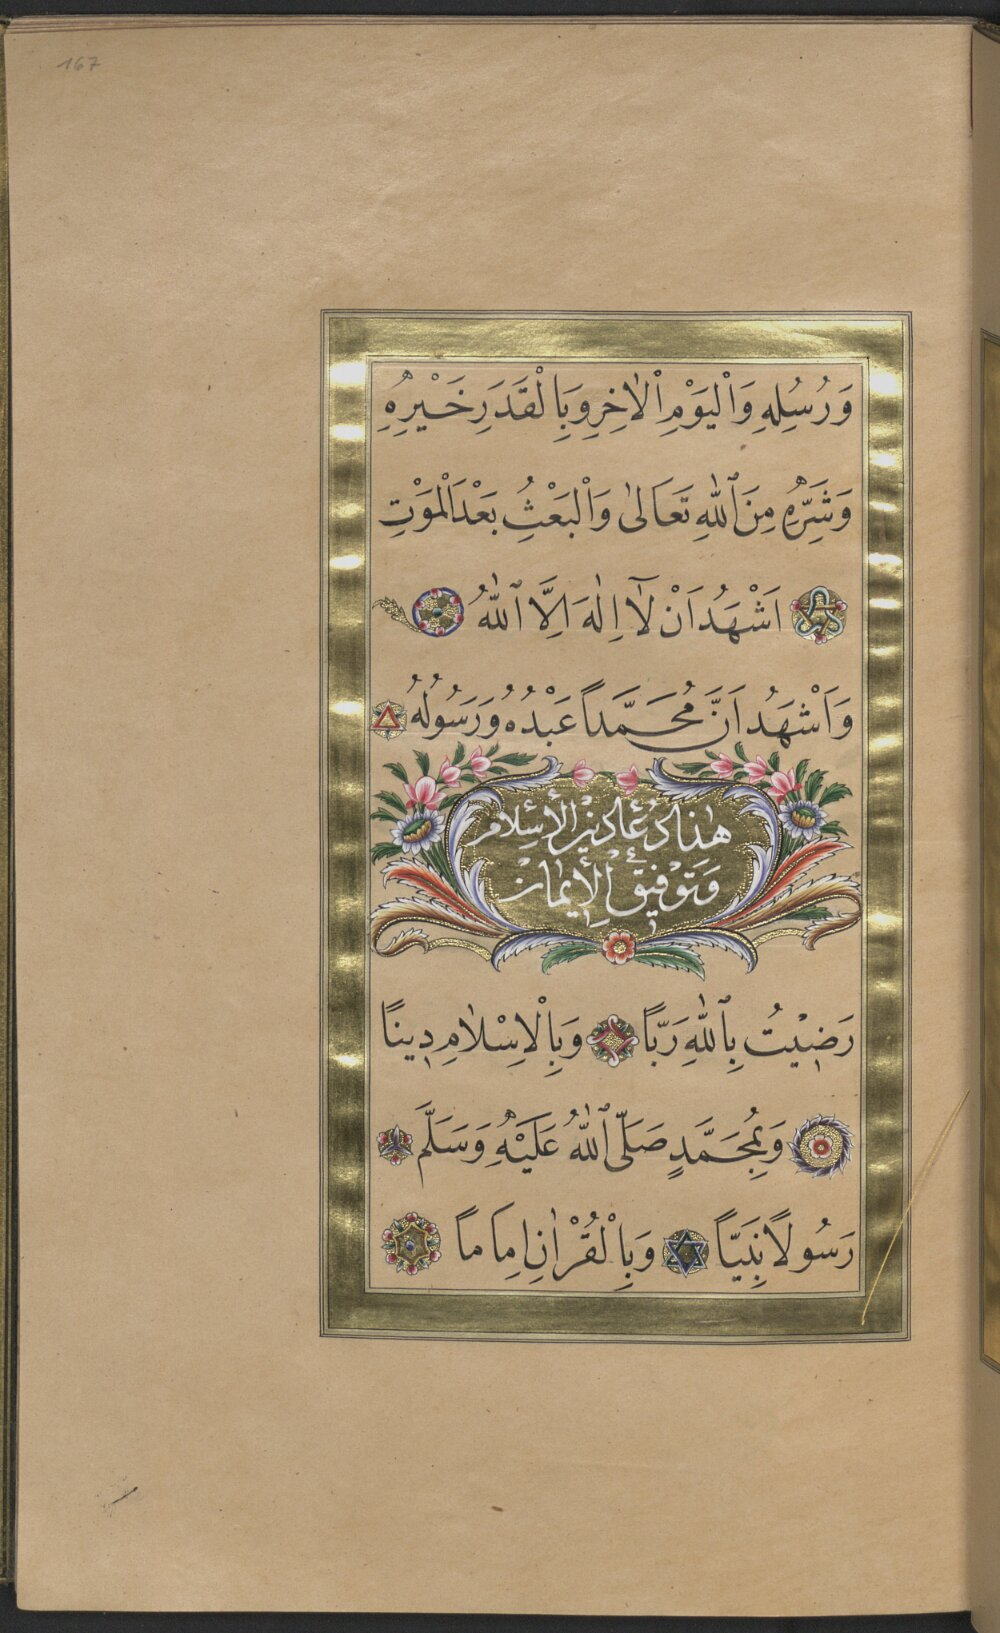 167
وَرُسُلِهِ وَالْيَوْمِ الْاٰخِرِ وَبِالْقَدَرِ خَيْرِهِ
وَشَرِّهِ مِنَ اللّٰهِ تَعَالٰى وَالْبَعْثِ بَعْدَ الْمَوْتِ
اَشْهَدُ اَنْ لَآ اِلٰهَ اِلَّا اللّٰهُ
وَاَشْهَدُ اَنَّ مُحَمَّدًا عَبْدُهُ وَرَسُولُهُ
هٰذا دُعَا دين الْأِسْلام
وَتَوْفيقِ الْأِيمان
رَضِيْتُ بِاللّٰهِ رَبًّا وَبِالْاِسْلٰامِ دِينًا
وَبِمُحَمَّدٍ صَلَّى اللّٰهُ عَلَيْهِ وَسَلَّمَ
رَسُولًا نَبِيًّا وَبِالْقُرْاٰنِ اِمَامًا